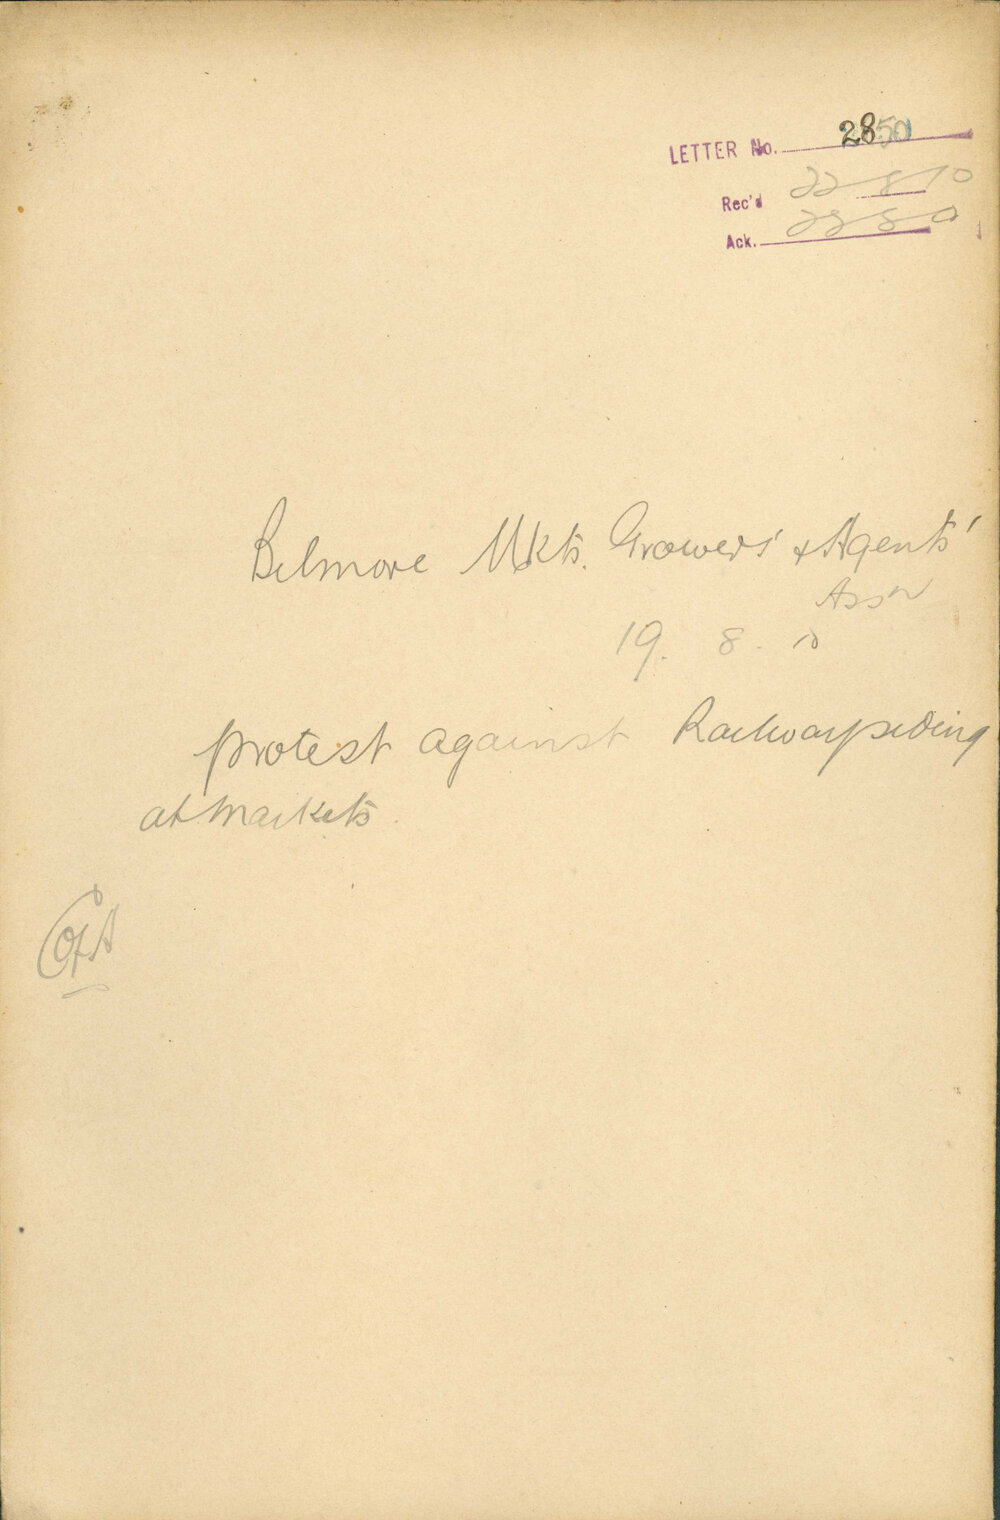 LETTER No. 2850
Rec'd 22 8 10
Ack.
Belmore Mkts. Growers' & Agents'
Assn
19. 8. 10
Protest against Railway siding
at Markets.